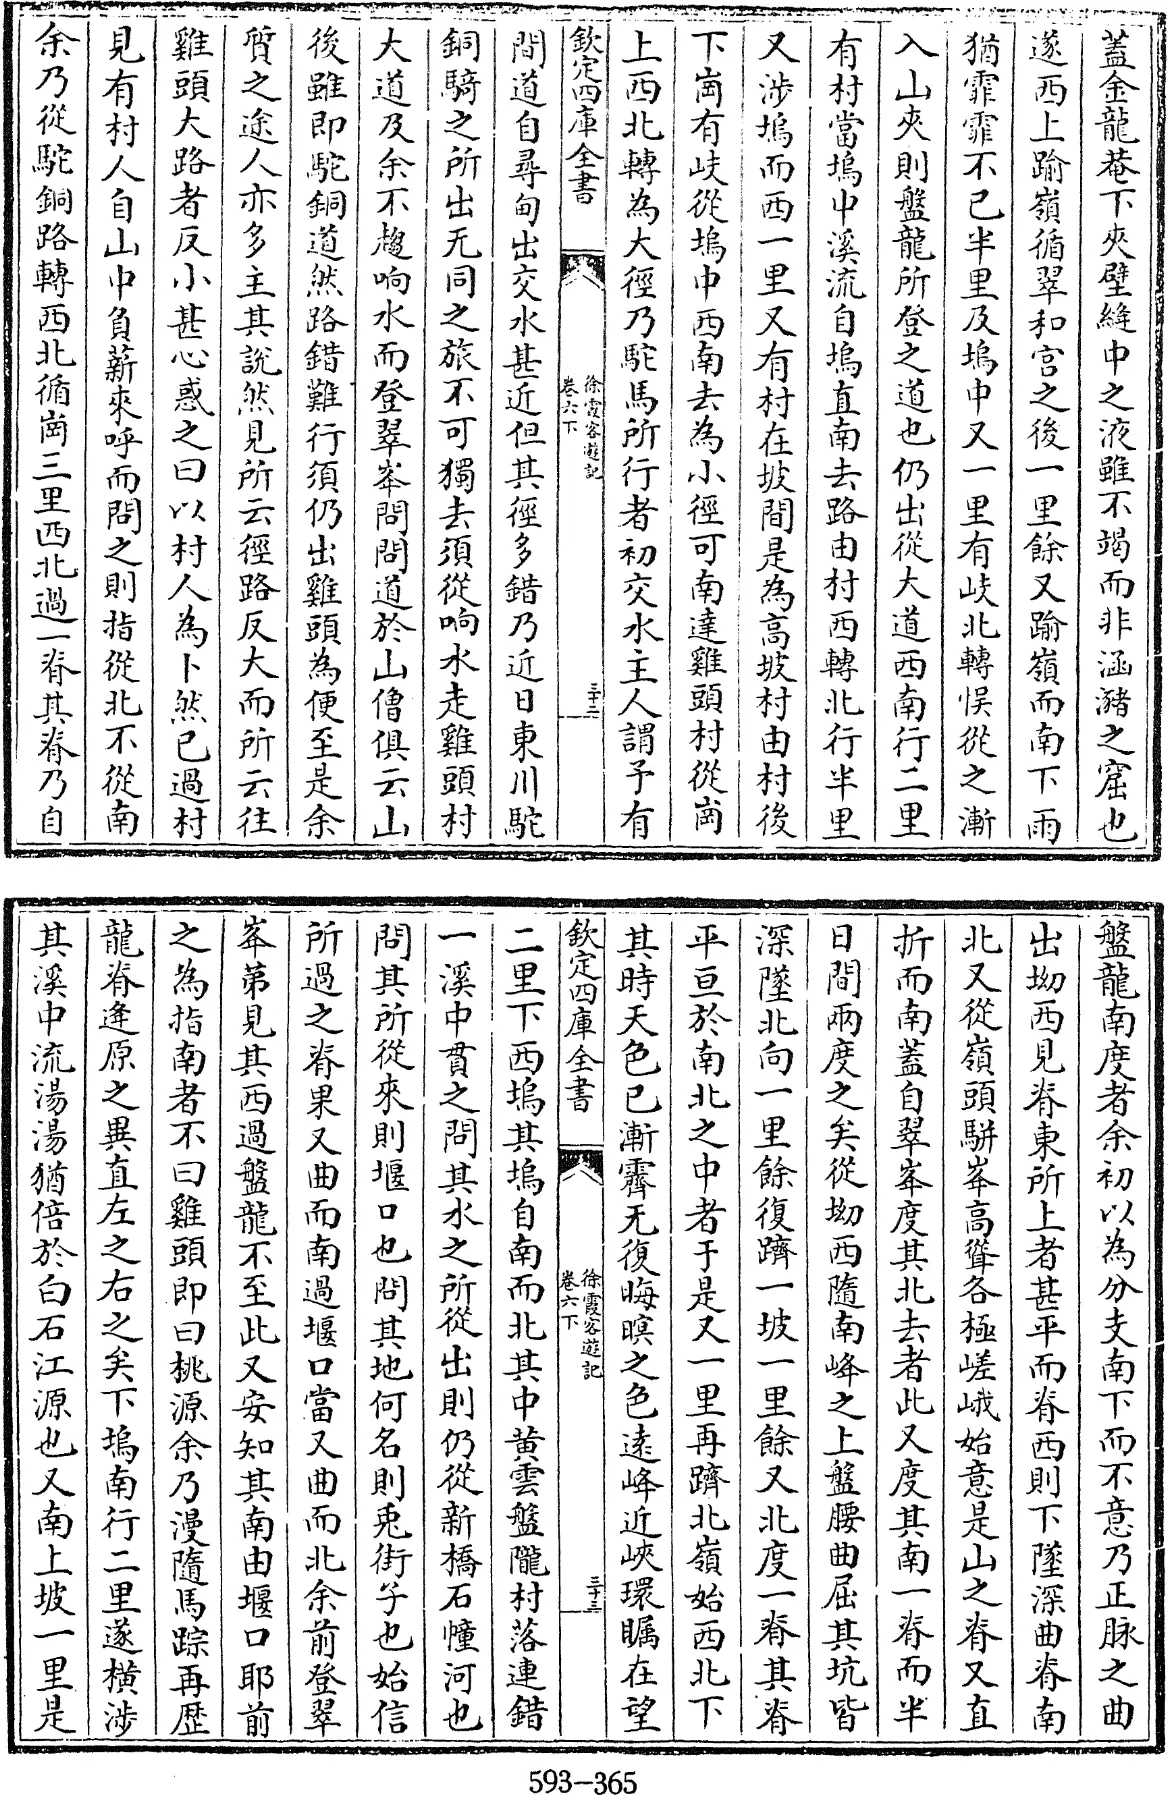 蓋金龍菴下夾壁縫中之液雖不竭而非涵瀦之窟也
遂西上踰嶺循翠和宫之後一里餘又踰嶺而南下雨
猶霏霏不已半里及塢中又一里有岐北轉悞從之漸
入山夾則盤龍所登之道也仍出從大道西南行二里
有村當塢中溪流自塢直南去路由村西轉北行半里
又涉塢而西一里又有村在坡間是為高坡村由村後
下崗有岐從塢中西南去為小徑可南達雞頭村從崗
上西北轉為大徑乃駝馬所行者初交水主人謂予有
欽定四庫全書
徐霞客遊記
卷六下
三十二
間道自尋甸出交水甚近但其徑多錯乃近日東川駝
銅騎之所出无同之旅不可獨去須從响水走雞頭村
大道及余不趨响水而登翠峯問問道於山僧俱云山
後雖即駝銅道然路錯難行須仍出雞頭為便至是余
質之途人亦多主其説然見所云徑路反大而所云往
雞頭大路者反小甚心惑之曰以村人為卜然已過村
見有村人自山中負薪來呼而問之則指從北不從南
余乃從駝銅路轉西北循崗三里西北過一脊其脊乃自
盤龍南度者余初以為分支南下而不意乃正脉之曲
出坳西見脊東所上者甚平而脊西則下墜深曲脊南
北又從嶺頭騈峯高聳各極嵯峨始意是山之脊又直
折而南蓋自翠峯度其北去者此又度其南一脊而半
日間兩度之矣從坳西隨南峰之上盤腰曲屈其坑皆
深墜北向一里餘復躋一坡一里餘又北度一脊其脊
平亘於南北之中者于是又一里再躋北嶺始西北下
其時天色已漸霽无復晦暝之色遠峰近峽環矚在望
欽定四庫全書
徐霞客遊記
卷六下
三十三
二里下西塢其塢自南而北其中黄雲盤隴村落連錯
一溪中貫之問其水之所從出則仍從新橋石幢河也
問其所從來則堰口也問其地何名則兎街子也始信
所過之脊果又曲而南過堰口當又曲而北余前登翠
峯第見其西過盤龍不至此又安知其南由堰口耶前
之為指南者不曰雞頭即曰桃源余乃漫隨馬踪再歴
龍脊逢原之異直左之右之矣下塢南行二里遂横涉
其溪中流湯湯猶倍於白石江源也又南上坡一里是
593-365